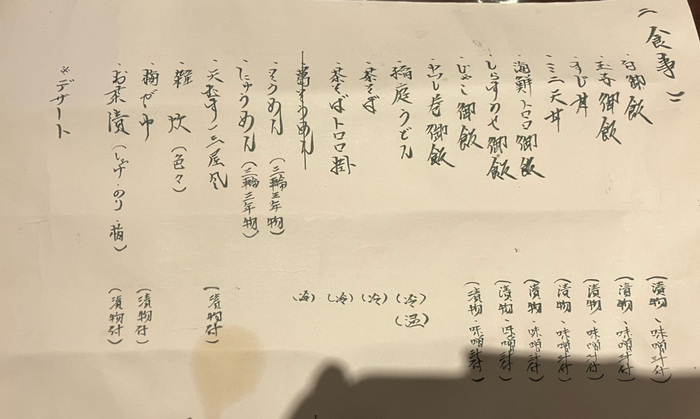 〃食事〃
・白御飯 (漬物・味噌汁付)
・玉子御飯 (漬物・味噌汁付)
・すじ丼 (漬物・味噌汁付)
・ミニ天丼 (漬物・味噌汁付)
・海鮮トロロ御飯 (漬物・味噌汁付)
・しらすのせ御飯 (漬物・味噌汁付)
・じゃこ御飯 (漬物・味噌汁付)
・出し巻御飯
・稲庭うどん (冷) (温)
・茶そば (冷)
・茶そばトロロ掛 (冷)
(冷)
・そうめん (三輪五年物)
・にゅうめん (三輪三年物)
・天むす/三屋風 (漬物付)
・雑炊 (色々)
・梅がゆ (漬物付)
・お茶漬 (しゃけ・のり・梅) (漬物付)
※デザート